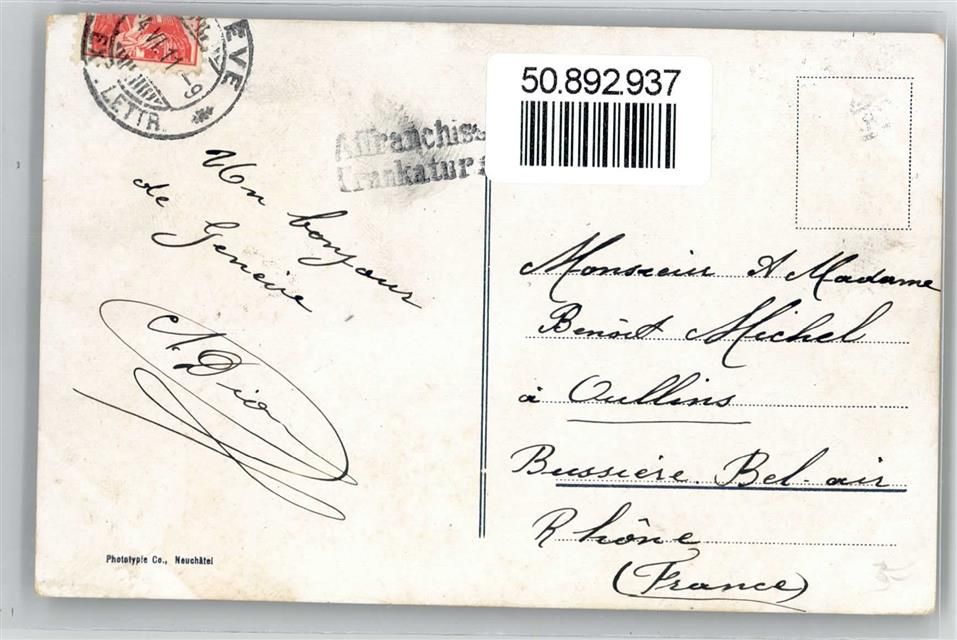 EVE
VI.11.-9
LETTR.
50.892.937
Affranchiss
Frankatur
Un bonjour
de Genève
Monsieur & Madame
Benoit Michel
à Oullins
Bussière. Bel-air
Rhône
(France)
Phototypie Co., Neuchâtel